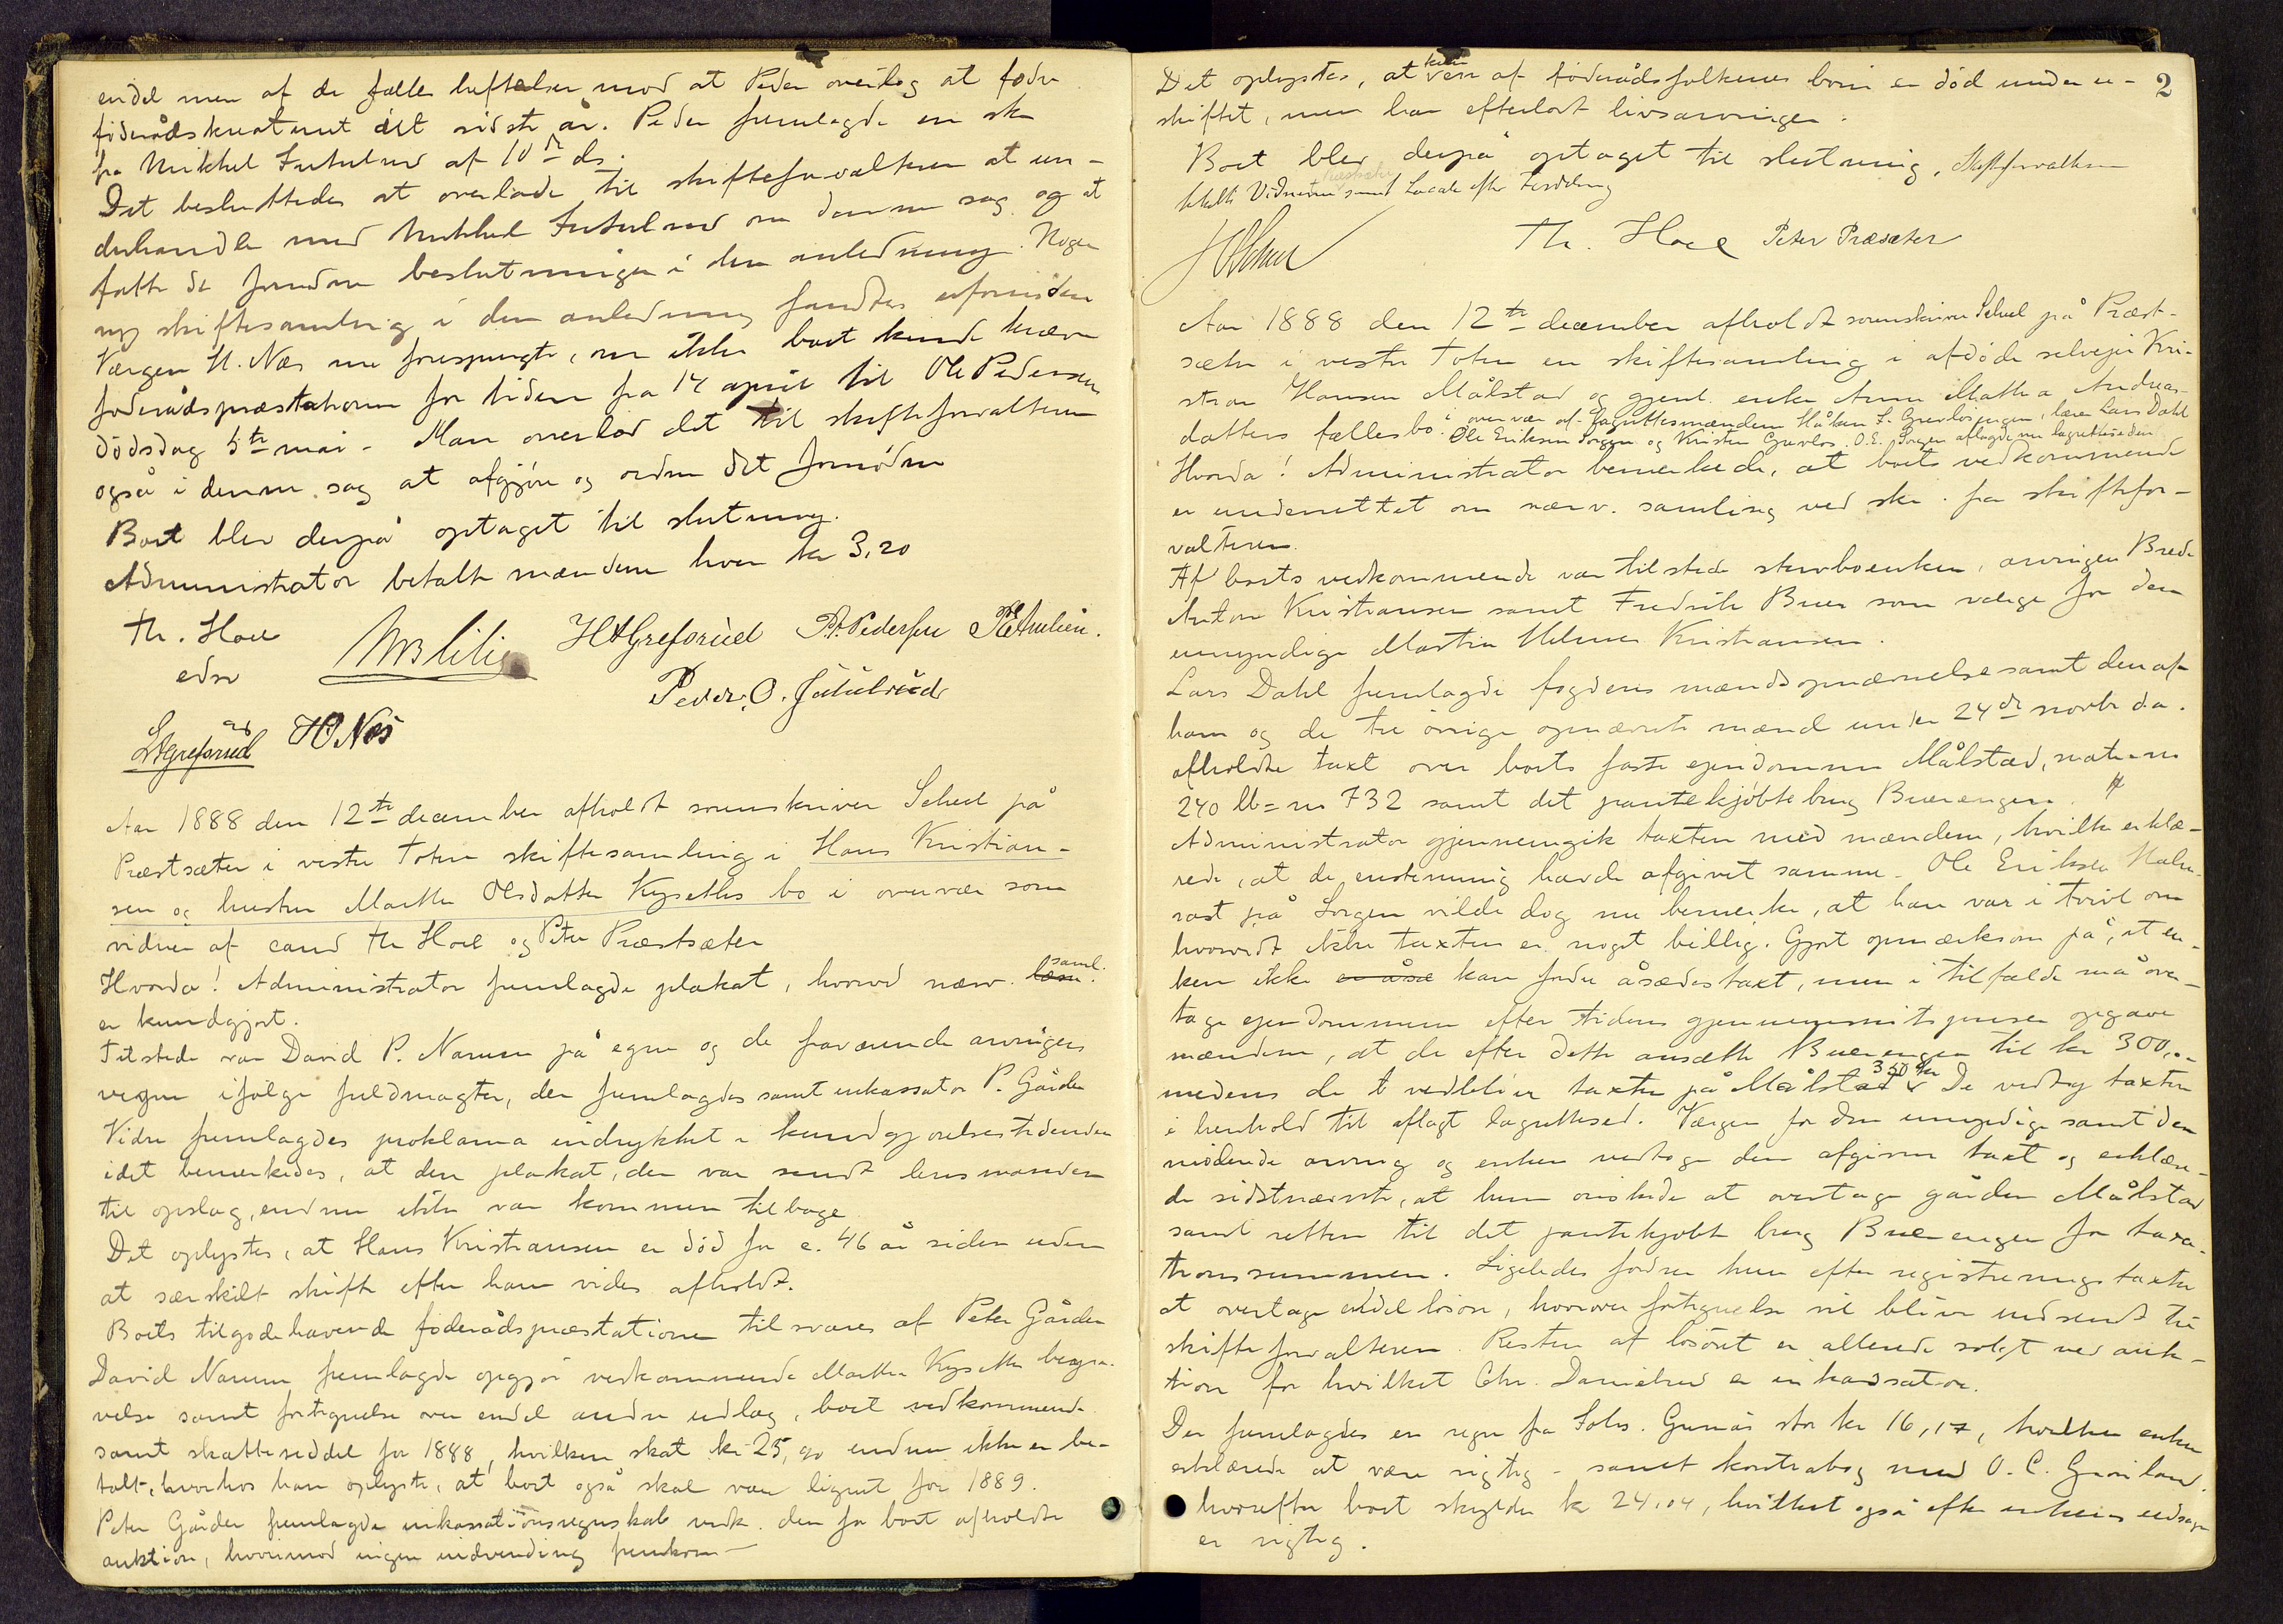 endel men af de fælles heftelser mod at Peder overtog at fodre
föderådskreaturet det sidste år. Peder fremlagde en skr
fra Mikkel Sutulrud af 10de ds.
Det besluttedes at overlade til skifteforvalteren at un-
derhandle med Mikkel Sutulrud om denne sag og at
fatte de fornødne beslutninger i den anledning. Nogen
ny skiftesamling i den anledning fandtes ufornöden
Værgen H. Næs nu forespurgte, om ikke boet kunde kræve
foderådspræstationen for tiden fra 14 april til Ole Pedersens
dödsdag 5te mai - Man overlod det til skifteforvalteren
også i denne sag at afgjöre og ordne det fornödne
Boet blev derpå optaget til slutning.
Administrator betalte mændene hver kr 3,20
Th. Hoel
edsv
HAGreforud P. Pedersen
Peder. O. Sutulrud
LAGreforud HO Næs
Aar 1888 den 12te december afholdt sorenskriver Scheel på
Præstsæter i vestre Toten skiftesamling i Hans Kristian-
sen og hustru Marthe Olsdatter Kyseths bo i overvær som
vidner af cand Th Hoel og Peter Præstsæter
Hvorda! Administrator fremlagde plakat, hvorved nærv. saml.
er kundgjort.
Tilstede var David P. Narum på egne og de fraværende arvingers
vegne ifölge fuldmagter, der fremlagdes samt inkassator P. Gården
Videre fremlagdes proklama indrykket i kundgjörelsestidenden
idet bemærkedes, at den plakat, der var sendt lensmanden
til opslag, endnu ikke var kommen tilbage
Det oplystes, at Hans Kristiansen er död for c. 46 år siden uden
at særskilt skifte efter ham vides afholdt.
Boets tilgodehavende föderådspræstationer tilsvares af Peter Gården
David Narum fremlagde opgjör vedkommende Marthe Kyseths begra-
velse samt fortegnelse over endel andre udlæg, boet vedkommende
samt skatteseddel for 1888, hvilken skat kr 25,90 endnu ikke er be-
talt, hvorhos han oplyste, at boet også skal være lignet for 1889.
Peter Gården fremlagde inkassationsregnskab vedk. den for boet afholdte
auktion, hvorimod ingen indvending fremkom -
2
Det oplystes, at kun een af föderådsfolkenes börn er död under u-
skiftet, men har efterladt livsarvinger.
Boet blev derpå optaget til slutning, Skifteforvalteren
betalte Vidnerne samt Locale efter Fordeling
Th. Hoel Peter Præsæter
Aar 1888 den 12te december afholdt sorenskriver Scheel på Præst-
sæter i vestre Toten en skiftesamling i afdöde selveier Kri-
stian Hansen Målstad og gjenl. enke Anne Mathea Andreas-
datters fællesbo i overvær af lagrettesmændene Håkon L. Grevlösengen, lærer Lars Dahl
Ole Eriksen Sorgen og Kristen Grevlos. O.E. Sorgen aflagde nu lagretteseden
Hvorda! Administrator bemærkede, at boets vedkommende
er underrettet om nærv. samling ved skr. fra skiftefor-
valteren.
Af boets vedkommende var tilstede sterboenken, arvingen Brede
Anton Kristiansen samt Fredrik Buer som værge for den
umyndige Martin Helmer Kristiansen.
Lars Dahl fremlagde fogdens mændsopnævnelse samt den af
ham og de tre övrige opnævnte mænd under 24de novbr d.a.
afholdte taxt over boets faste eiendomme Målstad, matr nr
240 lb=nr 732 samt det pantekjöbte brug Buerengen. #
Administrator gjennemgik taxten med mændene, hvilke erklæ-
rede, at de enstemmig havde afgivet samme. Ole Eriksen
på Sorgen vilde dog nu bemerke, at han var i tvivl om
hvorvidt ikke taxten er noget billig. Gjort opmærksom på, at en-
ken ikke en åsæ kan fordre åsædestaxt, men i tilfælde må over-
tage ejendommene efter tidens gjennemsnitspriser opgave
mændene, at de efter dette ansætte Buerengen til kr 300,00
medens de t vedbliver taxten på Målstad 350 kr De vedtog taxten
i henhold til aflagt lagrettesed. Værgen for den umyndige samt den
mödende arving og enken vedtoge den afgivne taxt og erklære-
de sidstnævnte, at hun önskede at overtage gården Målstad
samt retten til det pantekjöbte brug Buerengen for taxa-
tionssummen. Ligeledes fordrer hun efter registreringstaxten
at overtage endel lösöre, hvorover fortegnelse vil blive indsendt til
skifteforvalteren. Resten af lösöret er allerede solgt ved auk-
tion for hvilket Chr. Danielsrud er inkassator.
Der fremlagdes en regn fra Johs. Grenås stor kr 16,17, hvilken enken
erklærede at være rigtig - samt kontrabog med O. C. Grönland.
hvorefter boet skylder kr 24,04, hvilket også efter enkens udsagn
er rigtig.